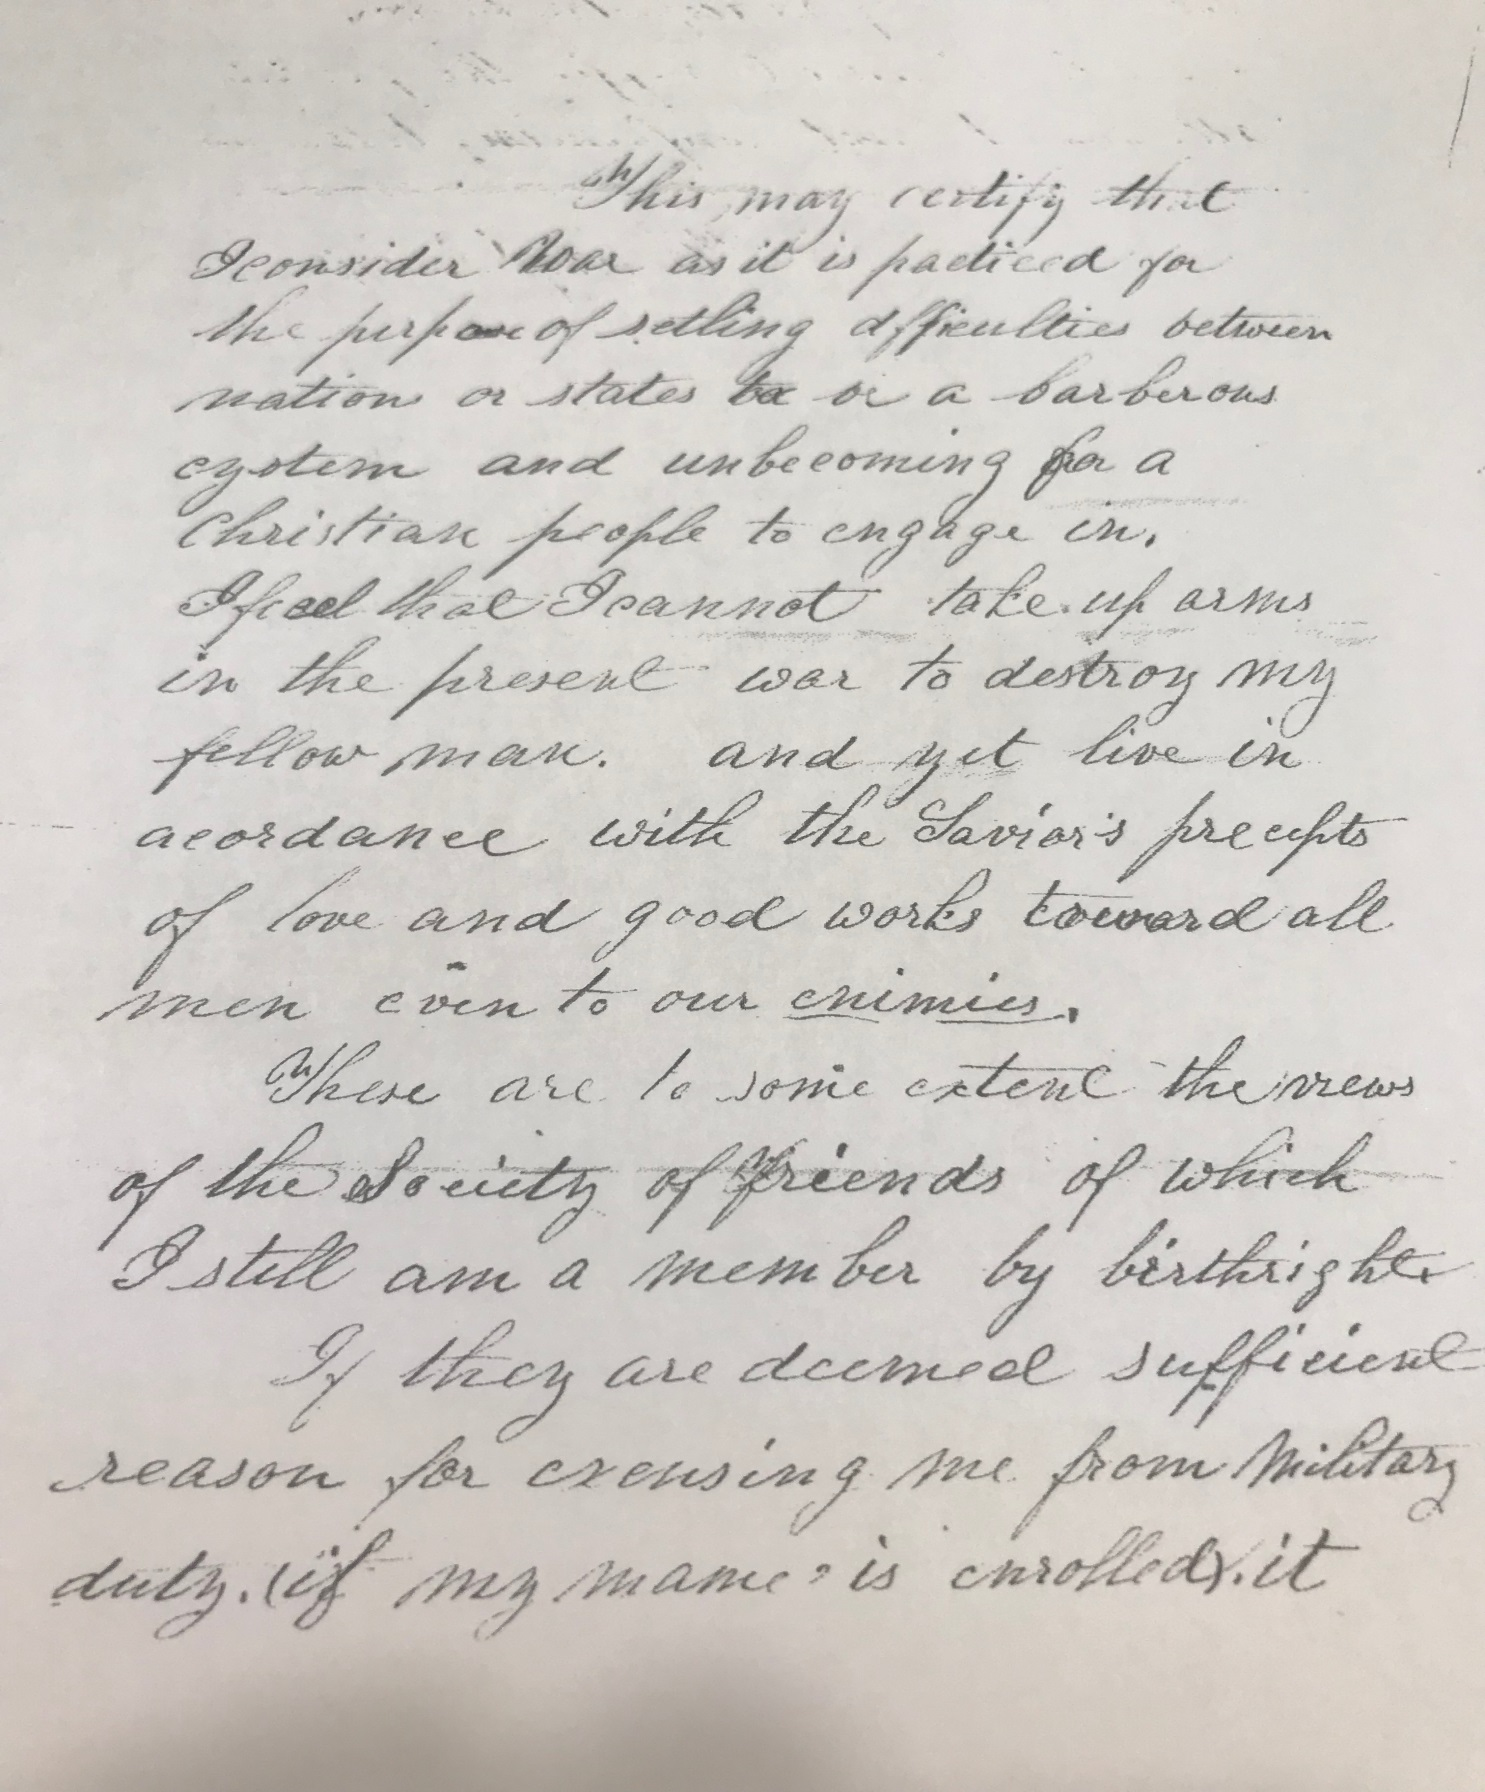 This may certify that
I consider War as it is practiced for
the purpose of settling dfficulties between
nation or states to be a barberous
cystem and unbecoming for a
Christian people to engage in.
I feel that I cannot take up arms
in the present war to destroy my
fellow man. and yet live in
acordance with the Savior's precepts
of love and good works toward all
men even to our enimies.
These are to some extent the views
of the Society of Friends of which
I still am a member by birthright.
If they are deemed sufficient
reason for excusing me from Military
duty. (if my name is enrolled). it